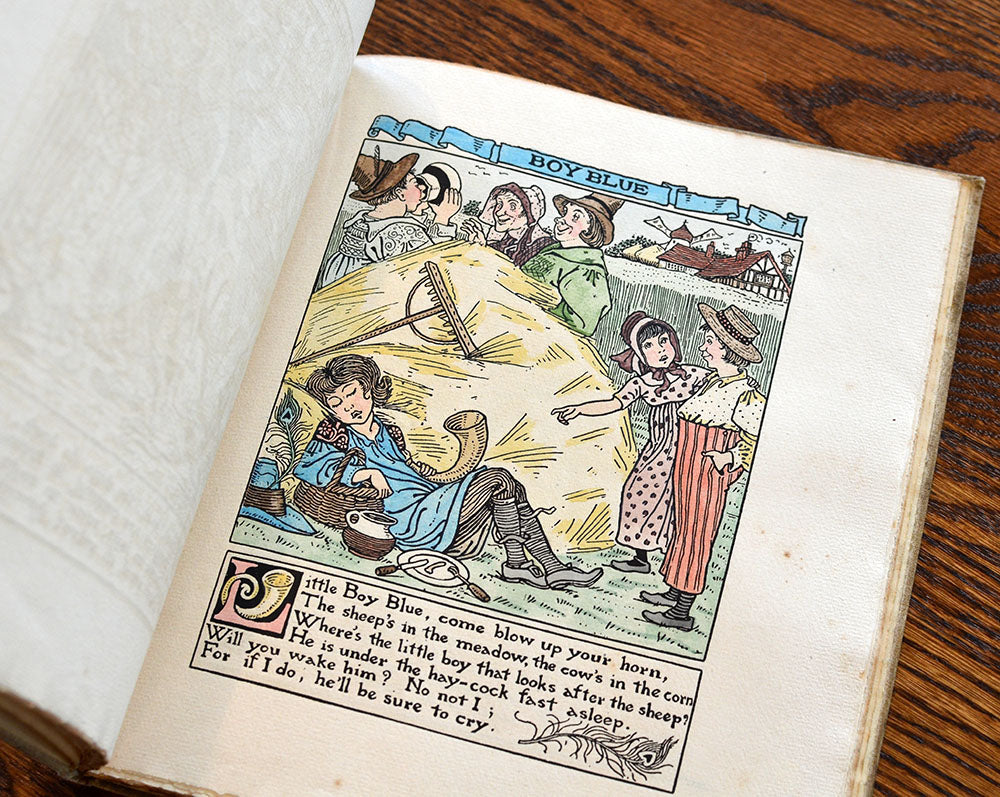 BOY BLUE
Little Boy Blue, come blow up your horn,
The sheep's in the meadow, the cow's in the corn
Where's the little boy that looks after the sheep?
He is under the hay-cock fast asleep.
Will you wake him? No not I;
For if I do, he'll be sure to cry.